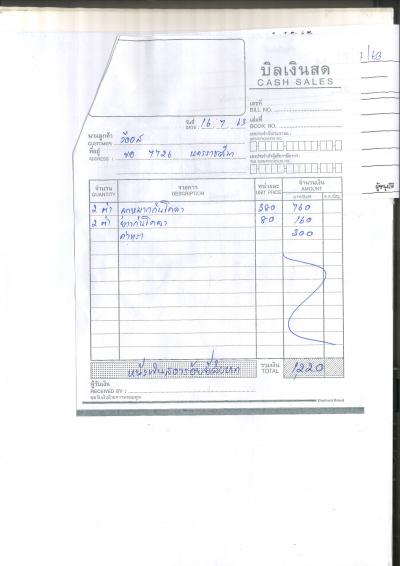 /63
บิลเงินสด
CASH SALES
เลขที่
BILL NO.
วันที่
DATE 16 7 63
เล่มที่
BOOK NO.
นามลูกค้า
CUSTOMER
ที่อยู่
ADDRESS : 40 7726 นครราชสีมา
จำนวน รายการ หน่วยละ จำนวนเงิน
QUANTITY DESCRIPTION UNIT PRICE AMOUNT
2 ตัว ลูกหมากกันโคลง 380 760
2 ตัว ยางกันโคลง 80 160
ค่าแรง 300
หนึ่งพันสองร้อยยี่สิบบาท
รวมเงิน
TOTAL 1,220
ผู้รับเงิน
RECEIVED BY :
Elephant Brand
ผู้อนุมัติ